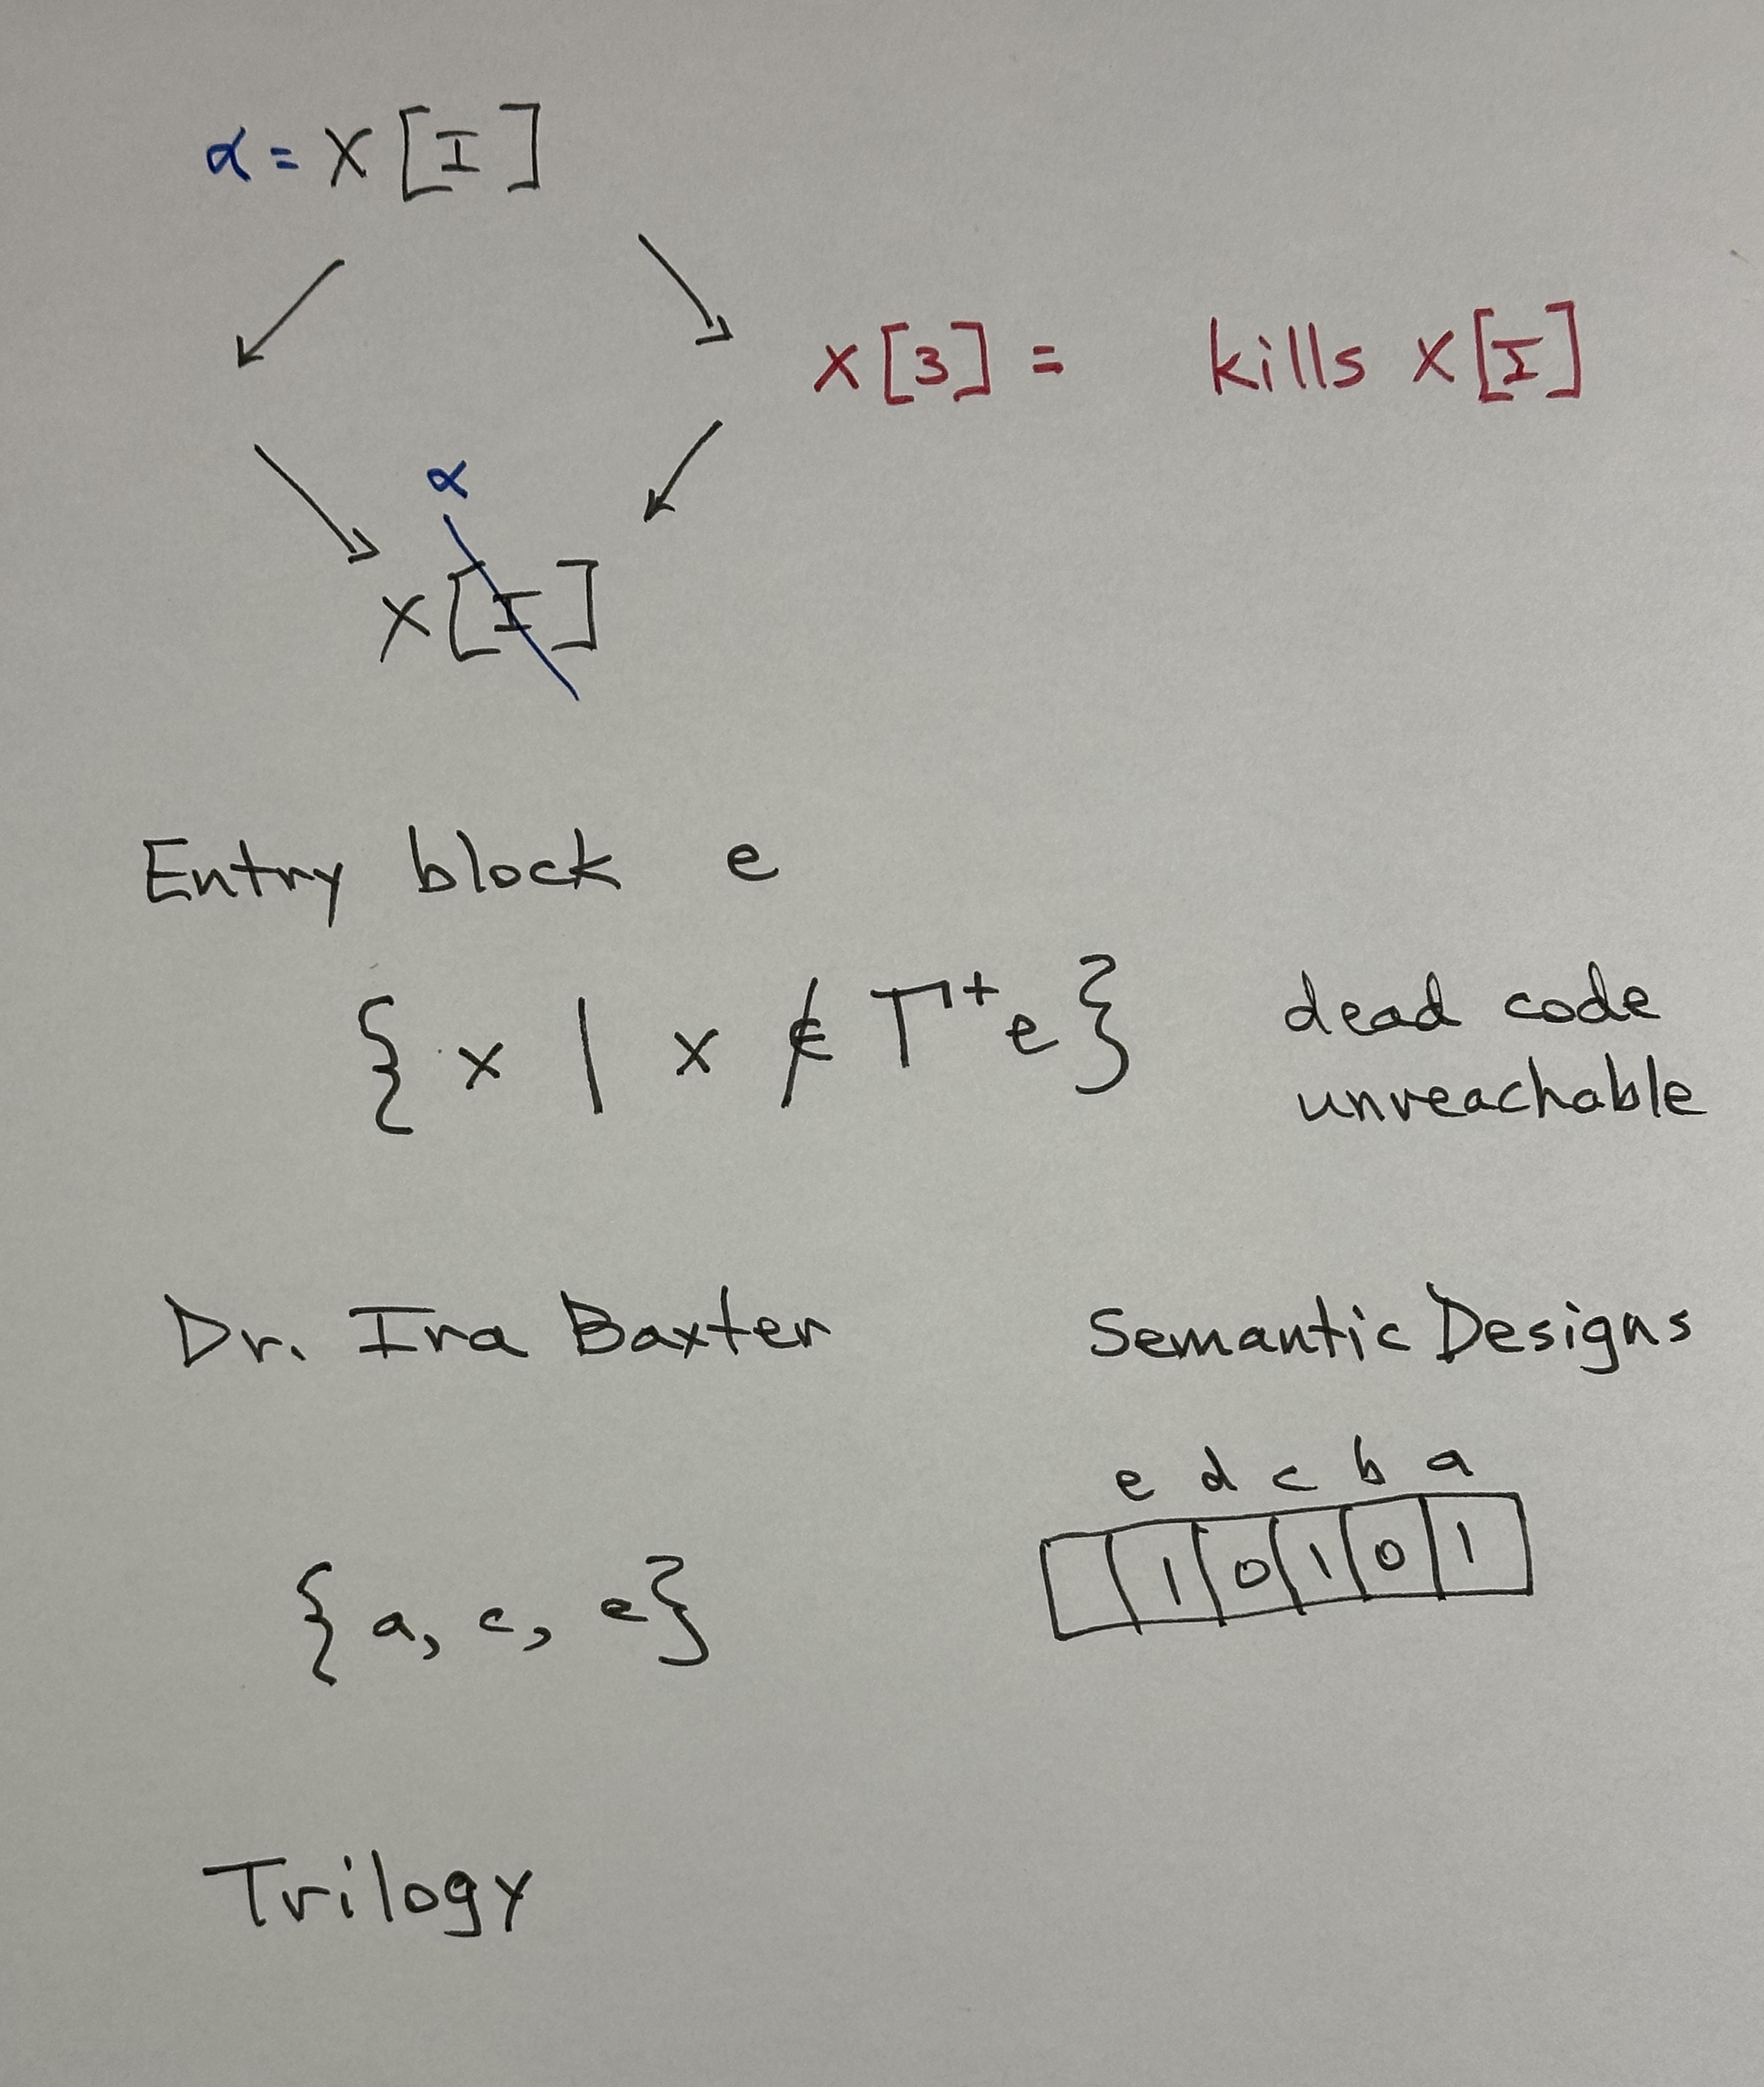 α = X [I]
X[3] = kills X[I]
α
X[I]
Entry block e
{ x | x ∉ Γ⁺e } dead code
unreachable
Dr. Ira Baxter Semantic Designs
e d c b a
{ a, c, e } 1 0 1 0 1
Trilogy